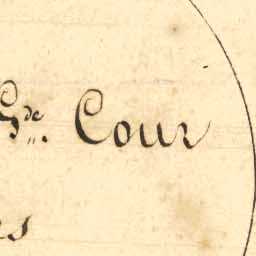 G.de Cour
es